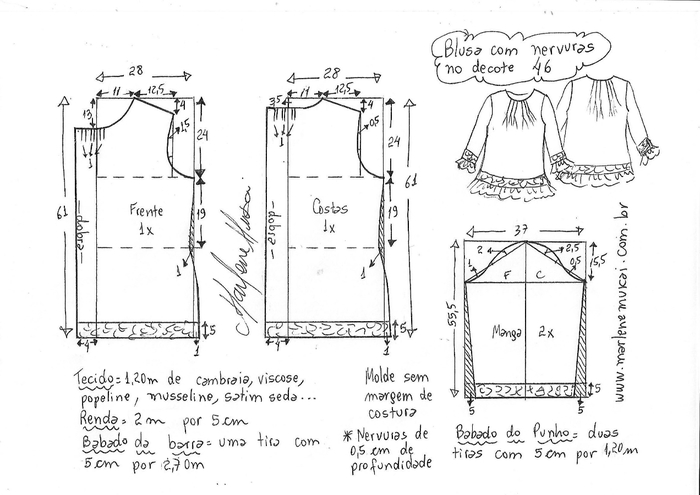 Blusa com nervuras
no decote 46
28
11
12,5
4
13
1,5
24
1
61
dobra
Frente
1x
19
1
5
4
1
28
11
12,5
3,5
4
0,5
24
1
61
dobra
Costas
1x
19
1
5
4
1
Marlene Mukai
37
2
2,5
1
0,5
15,5
F
C
55,5
Manga
2x
5
5
5
www.marlenemukai.com.br
Tecido = 1,20m de cambraia, viscose,
popeline, musseline, satim seda...
Renda = 2 m por 5 cm
Babado da barra = uma tira com
5 cm por 2,70m
Molde sem
margem de
costura
* Nervuras de
0,5 cm de
profundidade
Babado do Punho = duas
tiras com 5 cm por 1,20m